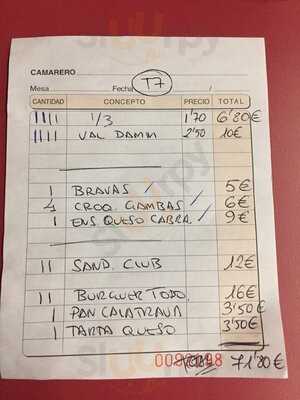 CAMARERO
Mesa Fecha T7 /
CANTIDAD CONCEPTO PRECIO TOTAL
1/3 1'70 6'80€
VAL DAMM 2'50 10€
1 BRAVAS / 5€
4 CROQ. GAMBAS / 6€
1 ENS. QUESO CABRA / 9€
11 SAND. CLUB 12€
11 BURGUER TODO. 16€
1 PAN CALATRAVA 3'50€
1 TARTA QUESO 3'50€
TOTAL 71'80€